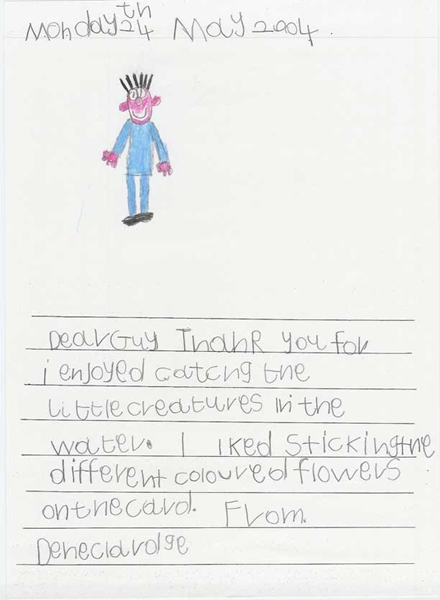 Monday 24th May 2004.
Dear Guy Thank you for
i enjoyed catcng the
little creatures in the
water. I iked sticking the
different coloured flowers
on the card. From